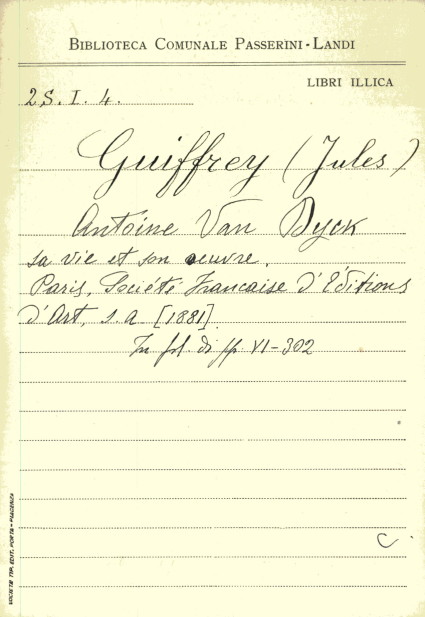 BIBLIOTECA COMUNALE PASSERINI-LANDI
LIBRI ILLICA
2S. I. 4.
Guiffrey (Jules)
Antoine Van Dyck
sa vie et son oeuvre.
Paris, Société Francaise d'Editions
d'Art, s. a [1881].
In fol. di pp. VI-302
C.
SOCIETÀ TIP. EDIT. PORTA - PIACENZA